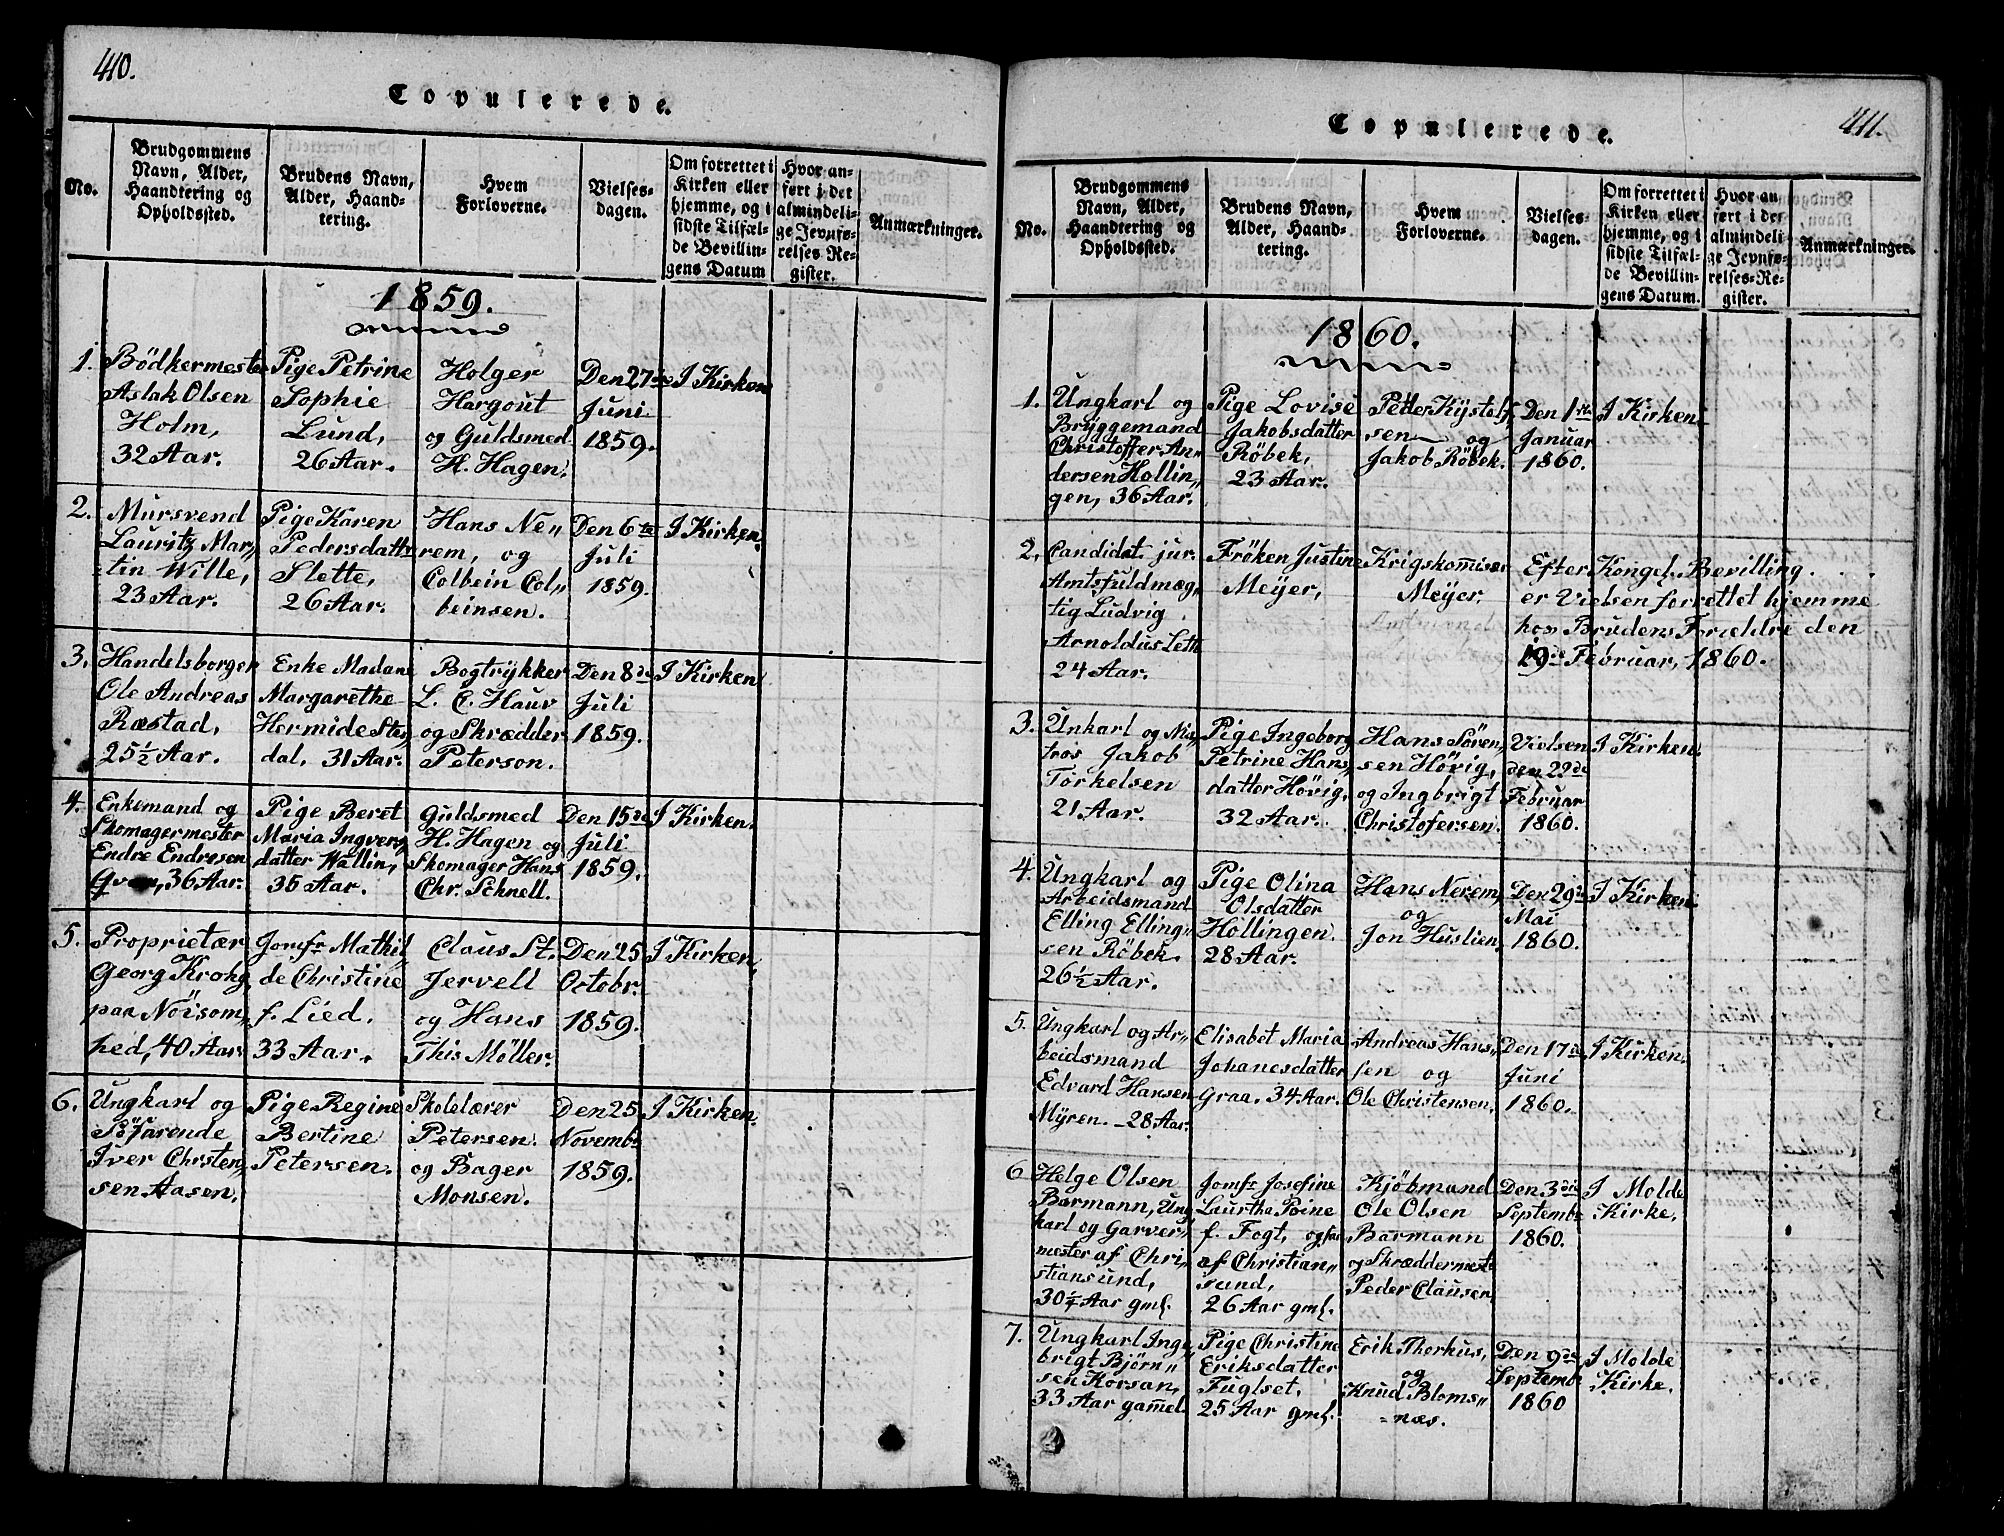 410.
Copulerede.
No.
Brudgommens
Navn, Alder,
Haandtering og
Opholdssted.
Brudens Navn,
Alder, Haand-
tering.
Hvem
Forloverne.
Vielses-
dagen.
Om forrettet i
Kirken eller
hjemme, og i
sidste Tilfæl-
de Bevillin-
gens Datum
Hvor an-
ført i det
almindeli-
ge Jevnfø-
relses-Re-
gister.
Anmærkninger.
1859.
1.
Bödkermester
Aslak Olsen
Holm,
32 Aar.
Pige Petrine
Sophie
Lund,
26 Aar.
Holger
Hargout
og Guldsmed
H. Hagen.
Den 27de
Juni
1859.
I Kirken
2.
Mursvend
Lauritz Mar„
tin Wille,
23 Aar.
Pige Karen
Pedersdatter
Slette,
26 Aar.
Hans Ne„
rem, og
Colbein Col„
beinsen.
Den 6te
Juli
1859.
I Kirken.
3.
Handelsborger
Ole Andreas
Ræstad,
25½ Aar.
Enke Madame
Margarethe
Hermide Ste„
dal, 31 Aar.
Bogtrykker
L. C. Hauv
og Skrædder
Peterson.
Den 8de
Juli
1859.
I Kirken
4.
Enkemand og
Skomagermester
Endre Endresen
36 Aar.
Pige Beret
Maria Ingvers„
datter Wallin,
35 Aar.
Guldsmed
H. Hagen og
Skomager Hans
Chr. Schnell.
Den 15de
Juli
1859.
I Kirken.
5.
Proprietær
Georg Krohg
paa Nöisom„
hed, 40 Aar.
Jomfr Mathil„
de Christine
f. Lied.
33 Aar.
Claus St.
Jervell
og Hans
This Möller.
Den 25
Octobr.
1859.
I Kirken.
6.
Ungkarl og
Söfarende
Iver Christen„
sen Aasen.
Pige Regine
Bertine
Petersen.
Skolelærer
Petersen.
og Bager
Monsen.
Den 25
Novembr
1859.
I Kirken.
411.
Copulerede.
No.
Brudgommens
Navn, Alder,
Haandtering og
Opholdssted.
Brudens Navn,
Alder, Haand-
tering.
Hvem
Forloverne.
Vielses-
dagen.
Om forrettet i
Kirken eller
hjemme, og i
sidste Tilfæl-
de Bevillin-
gens Datum.
Hvor an-
ført i det
almindeli-
ge Jevnfø-
relses-Re-
gister.
Anmærkninger.
1860.
1.
Ungkarl og
Bryggemand
Christoffer An„
dersen Hollin„
gen, 36 Aar.
Pige Lovise
Jakobsdatter
Röbek,
23 Aar.
Peder
sen og
Jakob Röbek.
Den 1ste
Januar
1860.
I Kirken
2.
Candidat jur.
Amtsfuldmæg„
tig Ludvig
Arnoldus Leth
24 Aar.
Fröken Justine
Meÿer,
Krigskomisær
Meÿer.
Efter Kongel. Bevilling
er Vielsen forrettet hjemme
hos Brudens Forældre den
19de Februar, 1860.
3.
Unkarl og Ma„
tros Jakob
Torkelsen
21 Aar.
Pige Ingeborg
Petrine Hans„
datter Hövig,
32 Aar.
Hans Sören„
sen Hövig,
og Ingbrigt
Christofersen.
Vielsen
den 29de
Februar
1860.
I Kirken
4.
Ungkarl og
Arbeidsmand
Elling Elling„
sen Röbek.
26½ Aar.
Pige Olina
Olsdatter
Hollingen.
28 Aar.
Hans Nerem,
og
Jon Huslien,
Den 29de
Mai
1860.
I Kirken
5.
Ungkarl og Ar„
beidsmand
Edvard Hansen
Mÿren. 28 Aar.
Elisabet Maria
Johanesdatter
Graa, 34 Aar.
Andreas Hans„
sen og
Ole Christensen.
Den 17de
Juni
1860.
I Kirken.
6
Helge Olsen
Barmann, Ung
karl og Garver„
mester af Chri„
stiansund,
30¼ Aar gml.
Jomfr Josefine
Laurtha Poine
f. Fogt,
af Christian„
sund,
26 Aar gml.
Kjöbmand
Ole Olsen
Barmann
og Skræddermest
Peder Clausen.
Den 3die
Septembr
1860.
I Molde
Kirke.
7.
Ungkarl Inge
brigt Björn„
sen Korsan,
33 Aar gam̄el.
Pige Christine
Eriksdatter
Fuglset,
25 Aar gml.
Erik Thorhus,
og
Knud Bloms„
=næs.
Den 9de
Septembr
1860
I Molde
Kirke.